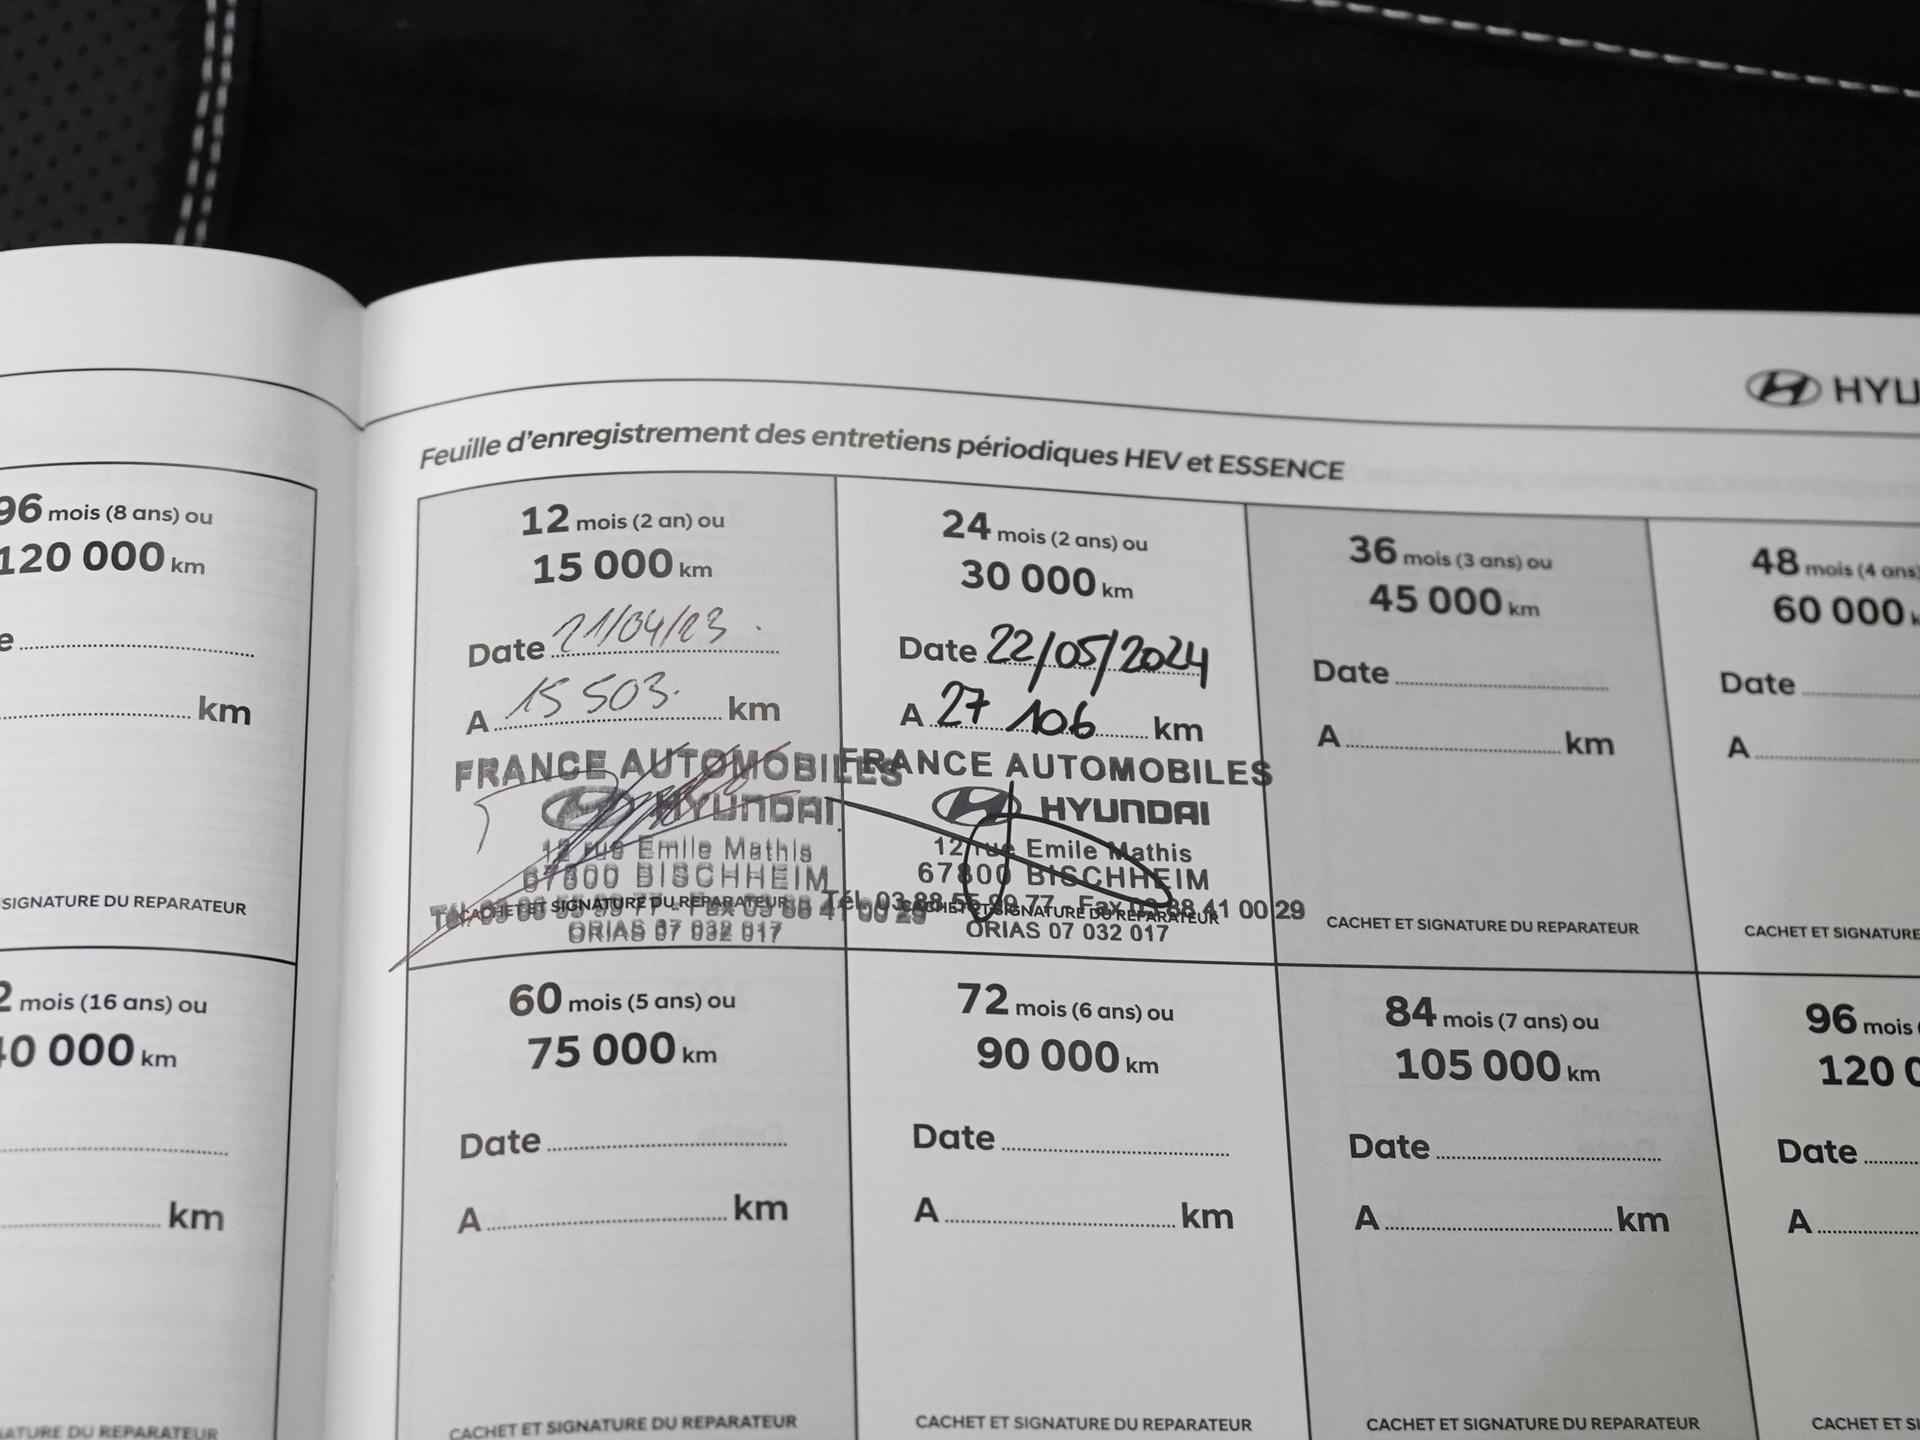 HYU
Feuille d'enregistrement des entretiens périodiques HEV et ESSENCE
96 mois (8 ans) ou
120 000 km
km
SIGNATURE DU REPARATEUR
mois (16 ans) ou
40 000 km
km
ATURE DU REPARATEUR
12 mois (2 an) ou
15 000 km
Date 21/04/23
A 15 503 km
FRANCE AUTOMOBILES
HYUNDAI
12 rue Emile Mathis
67800 BISCHHEIM
Tél. 03 88 55 99 77 - Fax 03 88 41 00 29
CACHET ET SIGNATURE DU REPARATEUR
ORIAS 07 032 017
24 mois (2 ans) ou
30 000 km
Date 22/05/2024
A 27 106 km
FRANCE AUTOMOBILES
HYUNDAI
12 rue Emile Mathis
67800 BISCHHEIM
Tél. 03 88 55 99 77 - Fax 03 88 41 00 29
CACHET ET SIGNATURE DU REPARATEUR
ORIAS 07 032 017
36 mois (3 ans) ou
45 000 km
Date
A km
CACHET ET SIGNATURE DU REPARATEUR
48 mois (4 ans)
60 000 k
Date
A
CACHET ET SIGNATURE
60 mois (5 ans) ou
75 000 km
Date
A km
CACHET ET SIGNATURE DU REPARATEUR
72 mois (6 ans) ou
90 000 km
Date
A km
CACHET ET SIGNATURE DU REPARATEUR
84 mois (7 ans) ou
105 000 km
Date
A km
CACHET ET SIGNATURE DU REPARATEUR
96 mois (
120 0
Date
A
CACHET ET SI